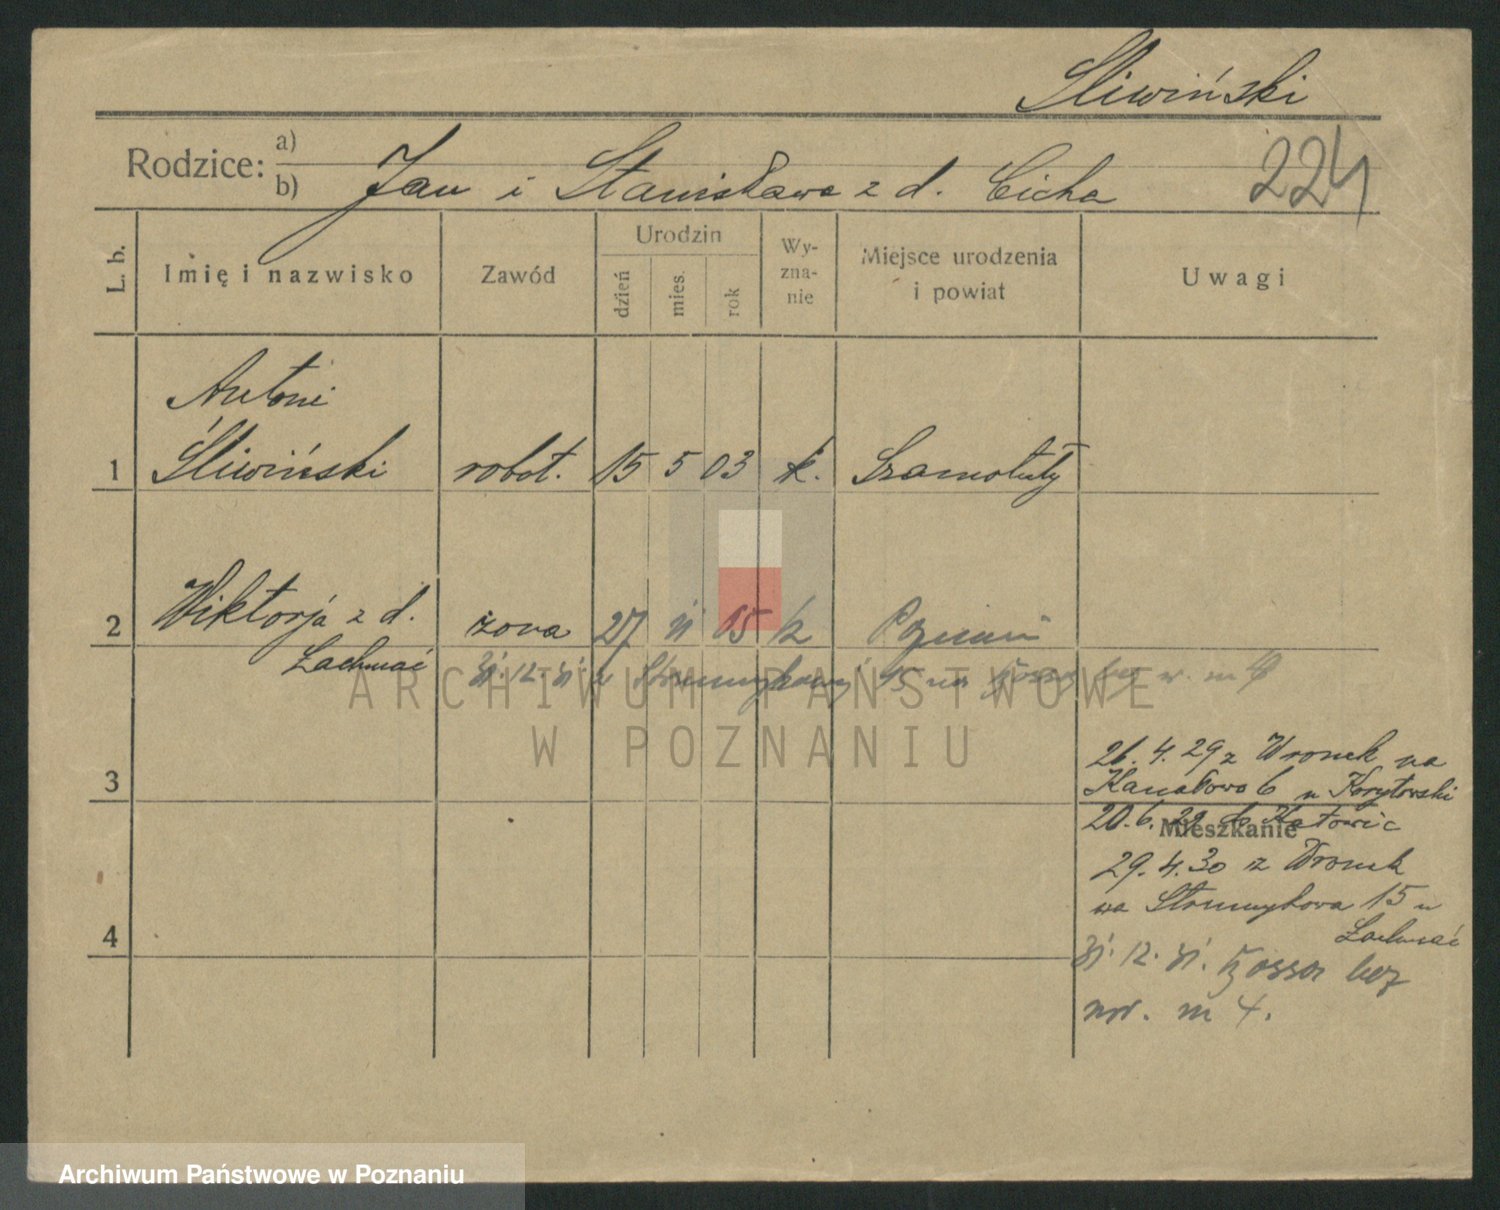 Śliwiński
Rodzice: a)
b) Jan i Stanisława z d. Cicha
224
L. b.
Imię i nazwisko
Zawód
Urodzin
dzień
mies.
rok
Wy-
zna-
nie
Miejsce urodzenia
i powiat
Uwagi
Antoni
1 Śliwiński robot. 15 5 03 k. Szamotuły
2 Wiktorja z d. żona 27 11 15 k Poznań
Łachnać
31.12.31 z Strumykowej 15 na bez n. m 4
3
26.4.29 z Wronek na
Kanałowa 6 u Korytowski
20.6.29 do Katowic
Mieszkanie
29.4.30 z Wronek
na Strumykowa 15 u
Łachnać
4
31.12.31. bez
nr. m 4.
ARCHIWUM PAŃSTWOWE
W POZNANIU
Archiwum Państwowe w Poznaniu